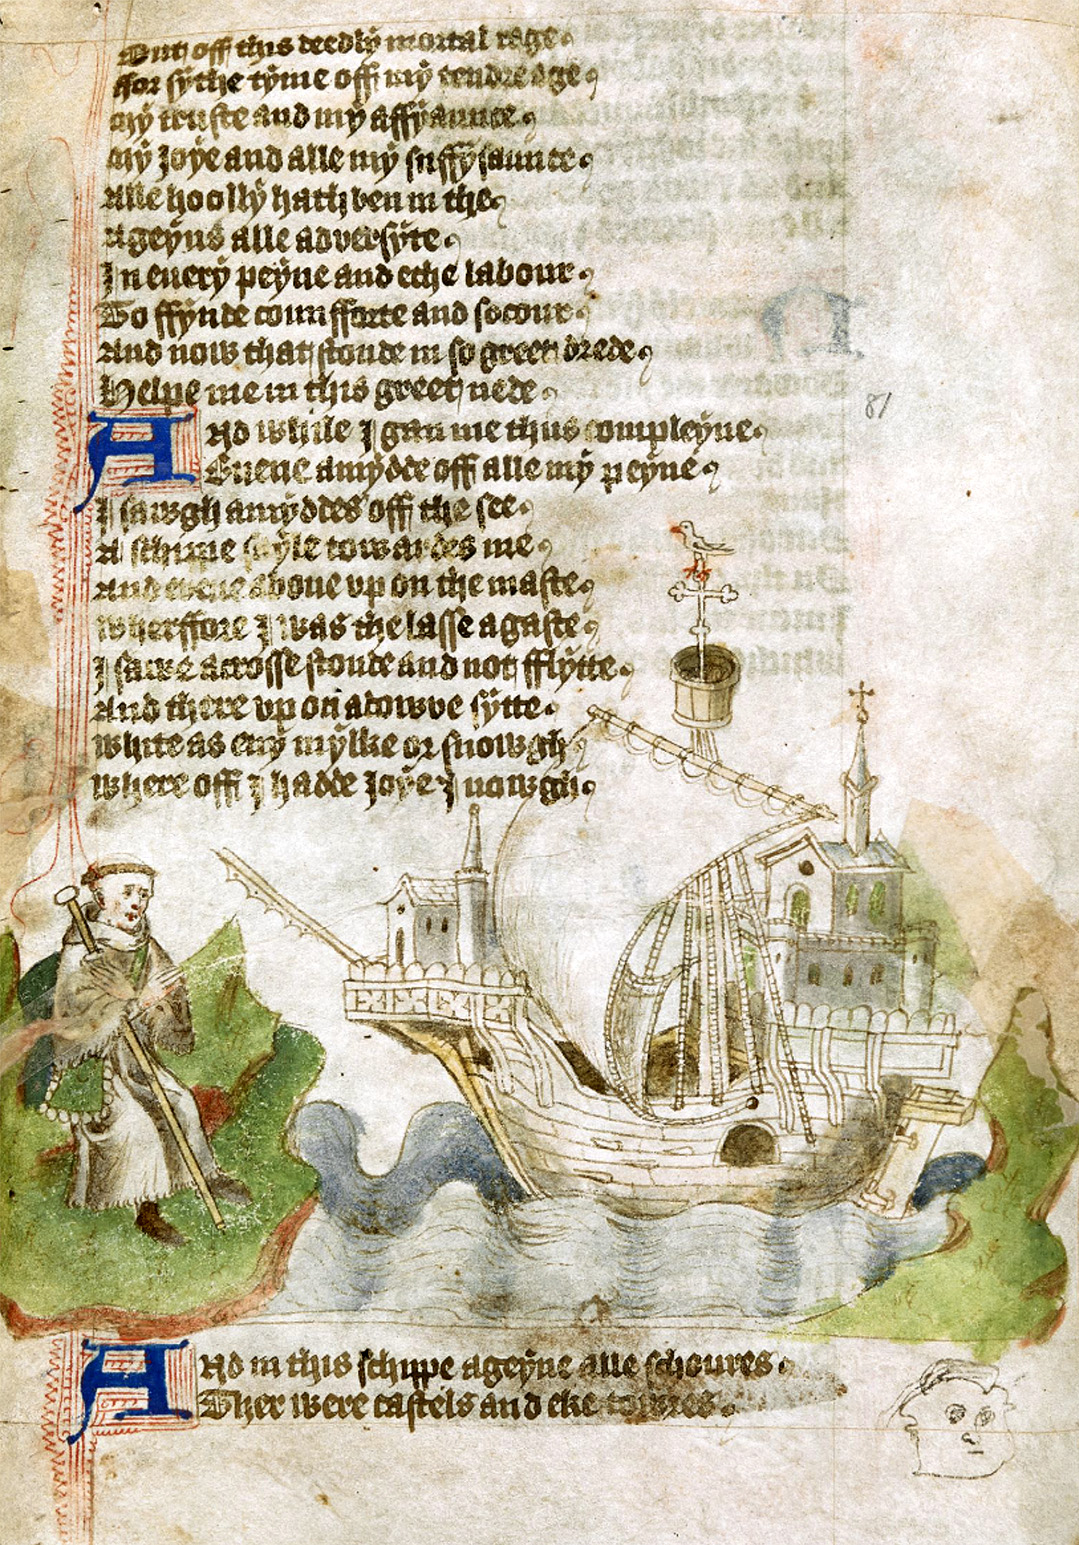 But off this deedly mortal rage
ffor sythe tyme off my tendre age
My truste and my affyaunce
My Joye and alle my suffysaunce
Alle hoolly hath ben in the
Ageyns alle adversyte
In euery peyne and eche labour
To ffynde counfforte and socour
And now that stonde in so greet drede
Helpe me in this greet nede
ANd while I gan me thus compleyne
Euene amydde off alle my peyne
I sawgh amyddes off the see
A schippe sayle towardes me
And evene aboue vp on the maste
Wherffore I was the lasse agaste
I sawe a crosse stonde and not fflytte
And there vp on a dowve sytte
White as eny mylke or snowgh
Where off I hadde Joye I nowgh
81
ANd in this schippe ageyne alle schoures
Ther were castels and eke towres